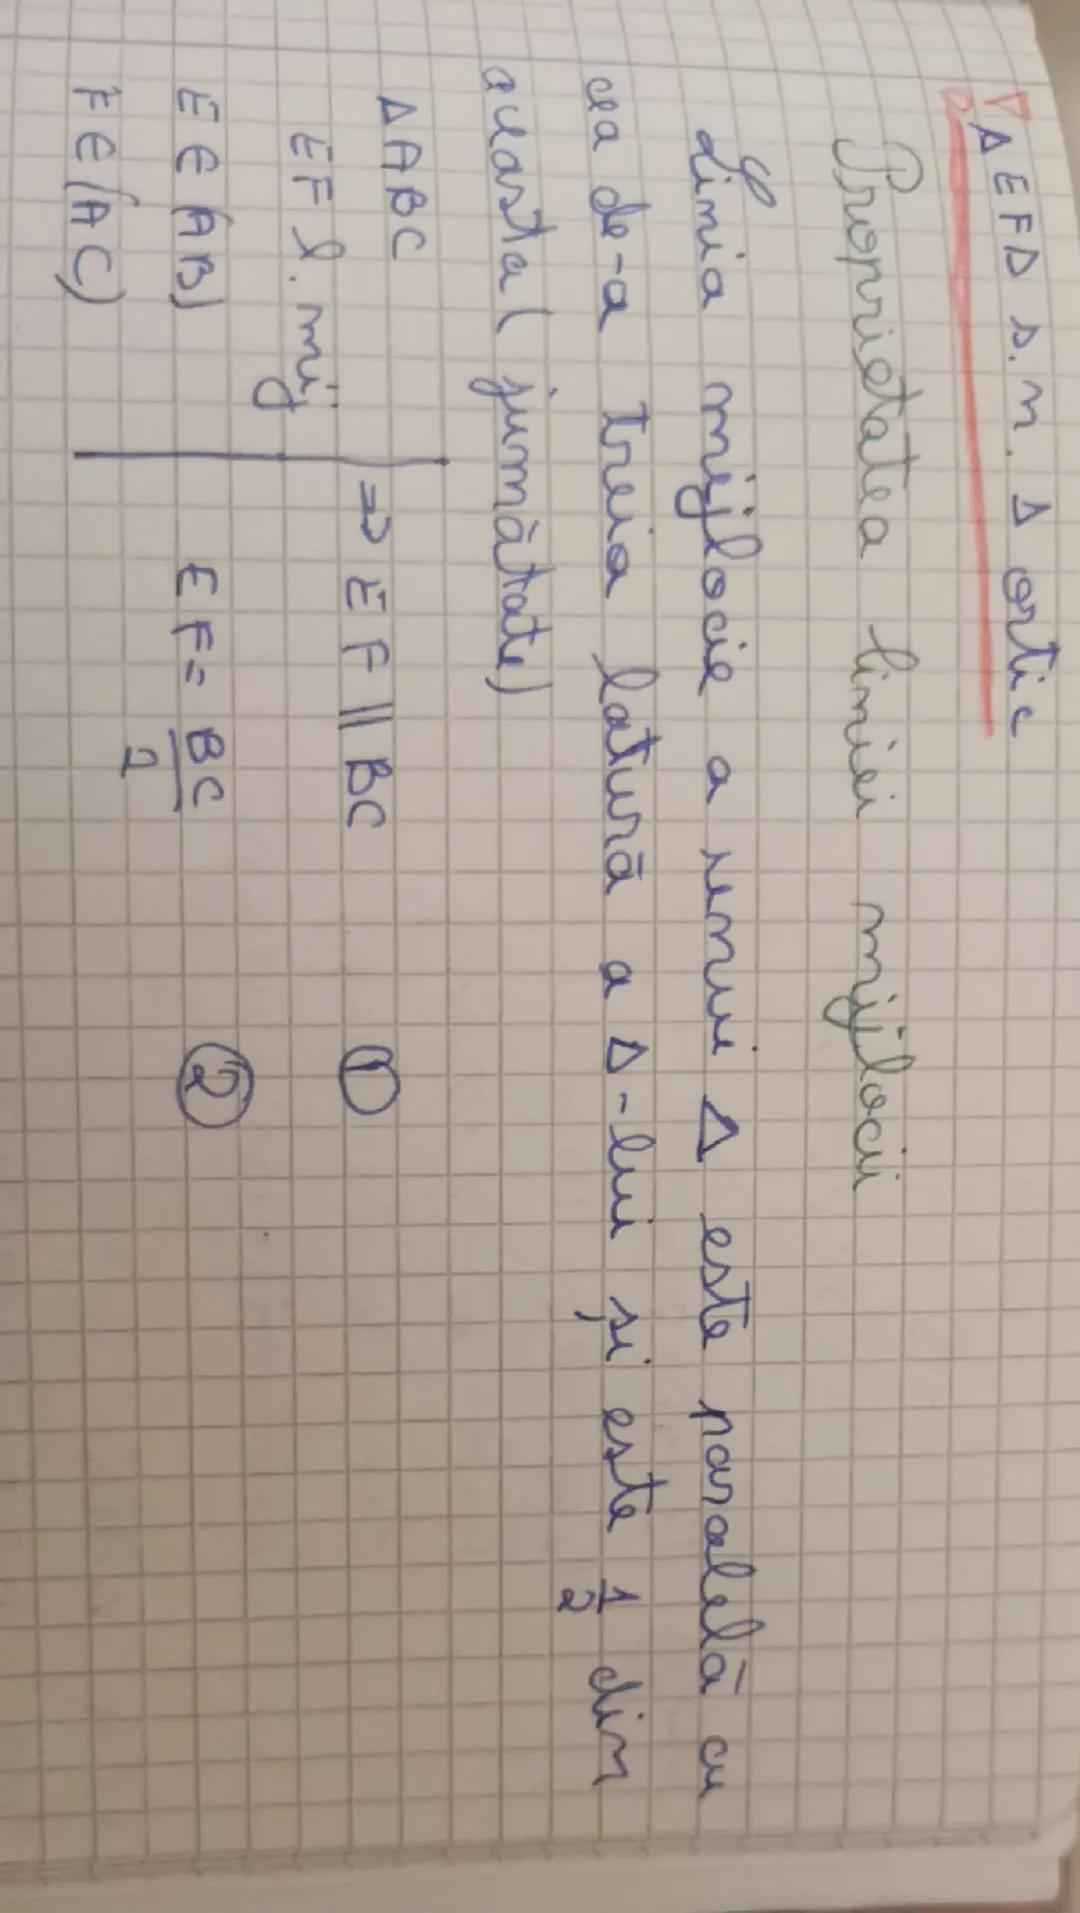 Δ EFD s.n. Δ ortic
Proprietatea liniei mijlocii
Linia mijlocie a unui Δ este paralelă cu
cea de-a treia latură a Δ-lui și este 1/2 din
aceasta (jumătate)
Δ ABC
EF l. mij
⇒ EF || BC ①
E ∈ (AB)
EF = BC/2 ②
F ∈ (AC)